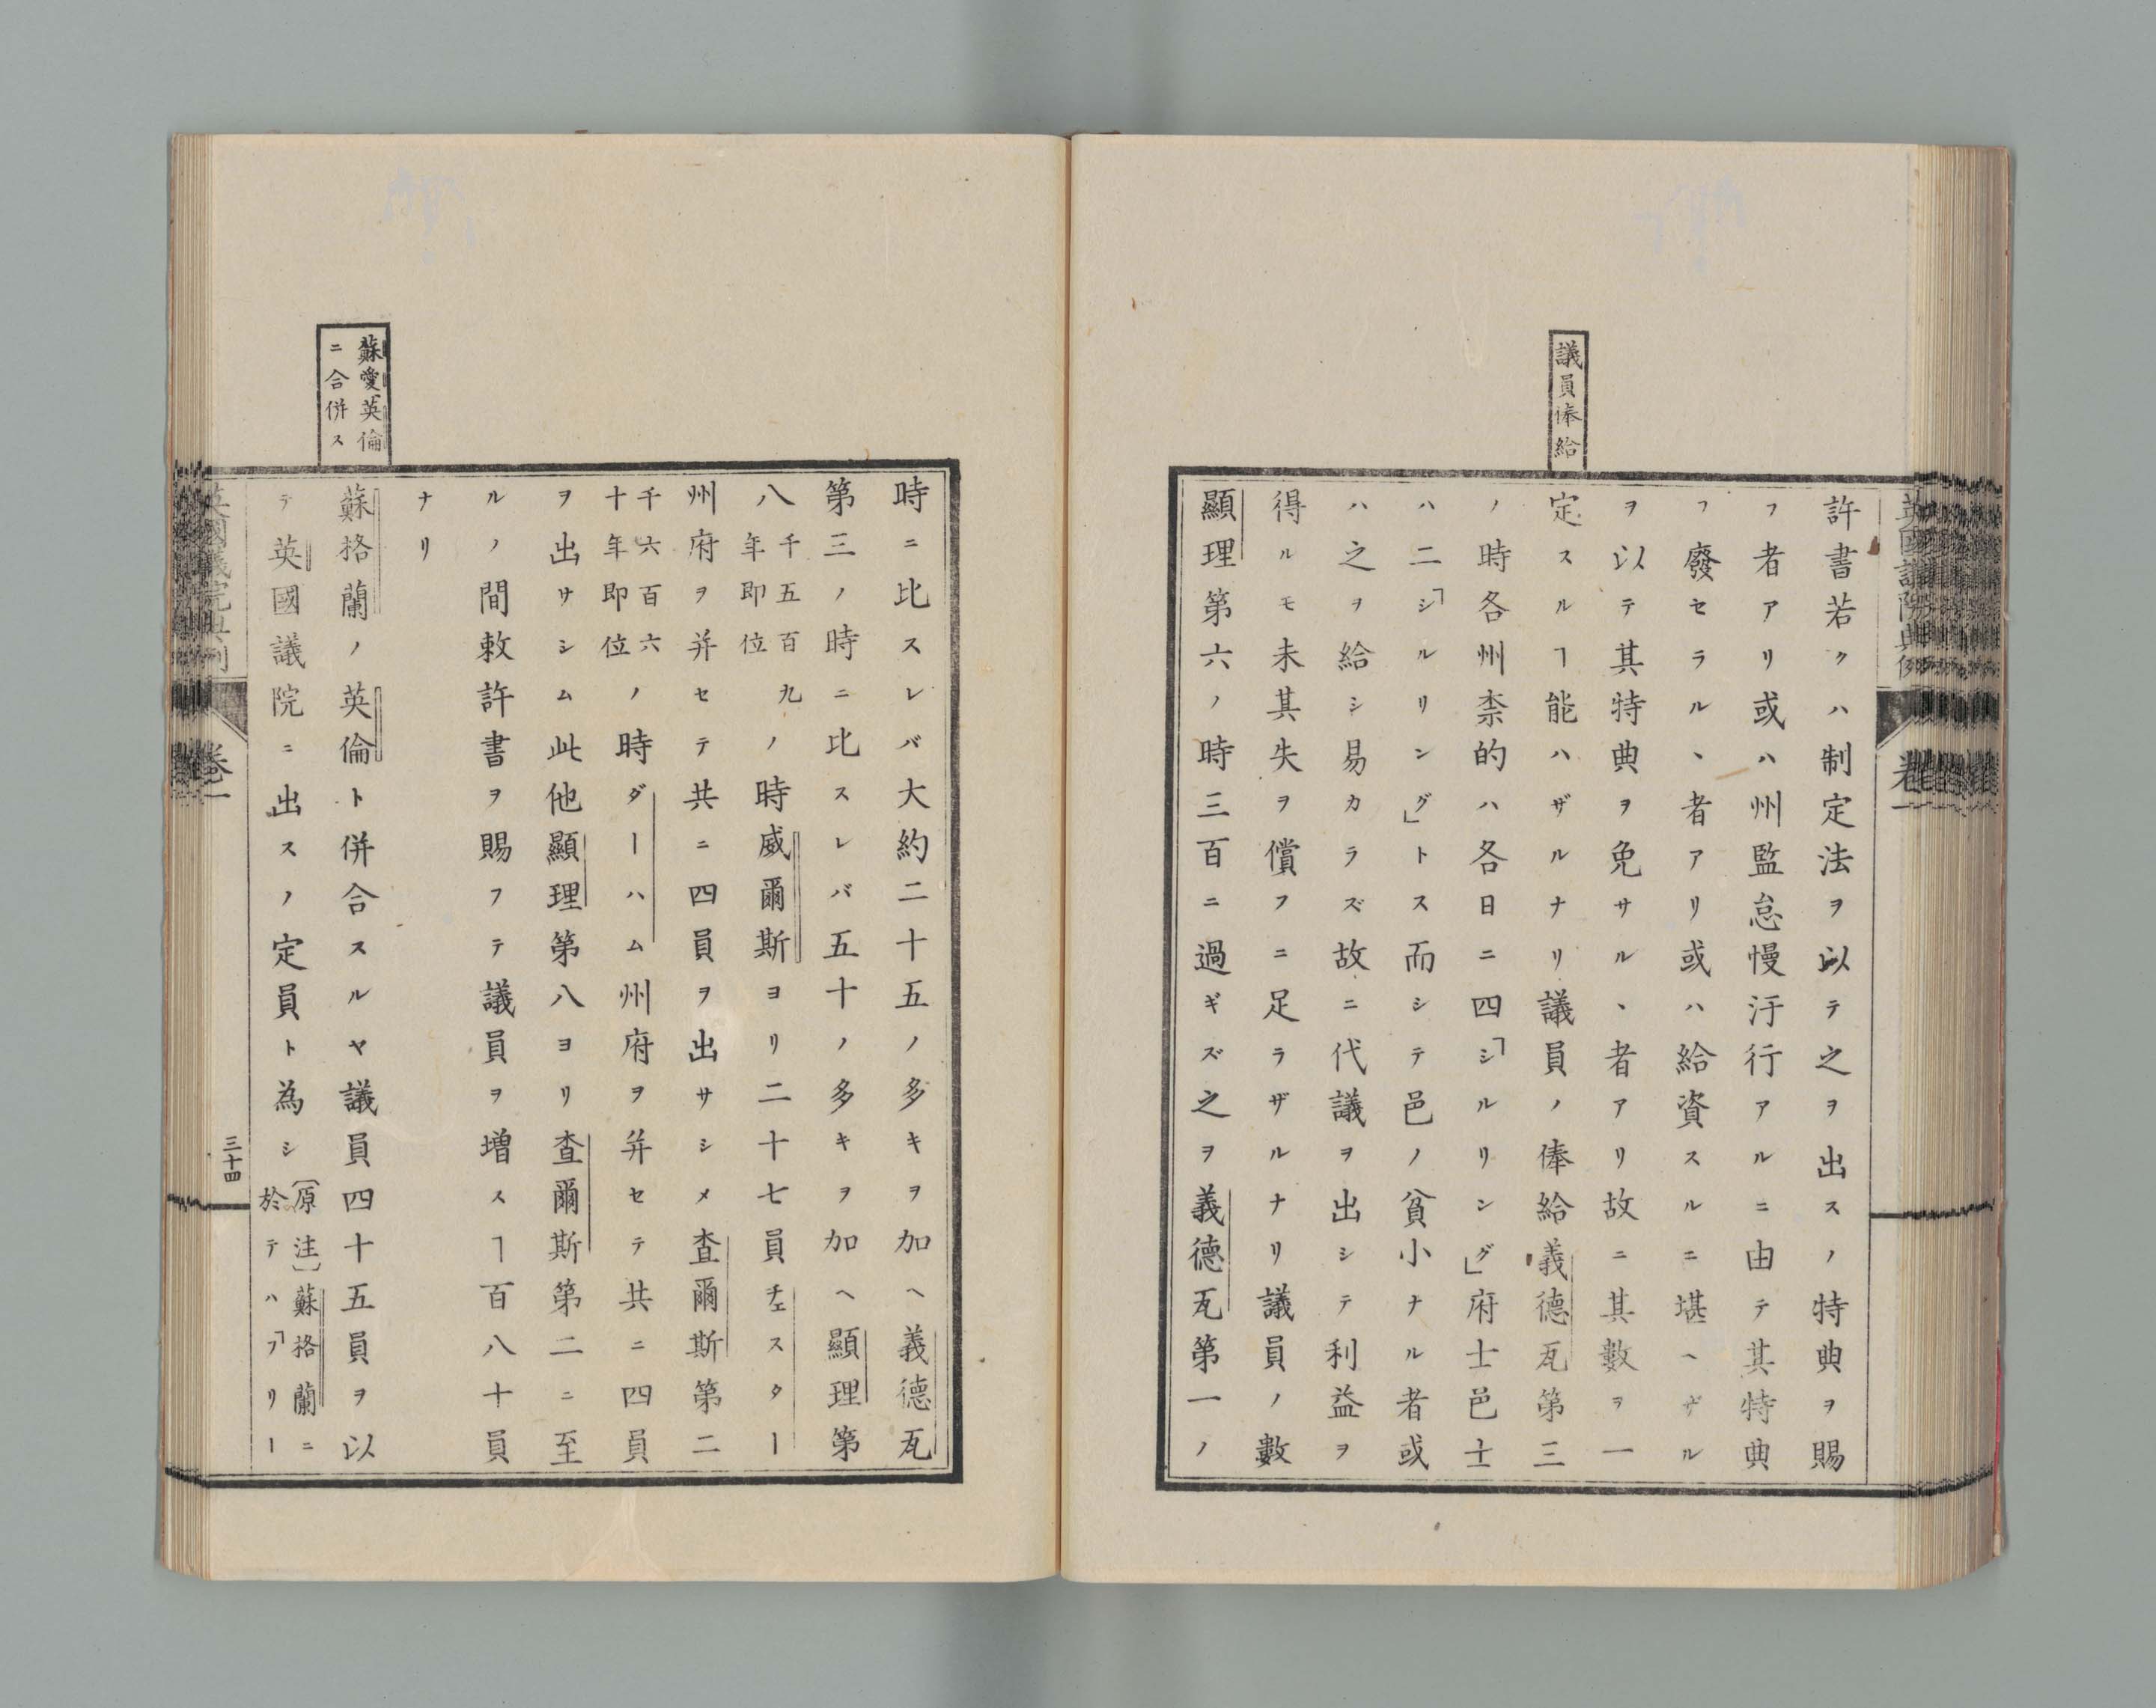 英國議院典例
卷一
議員俸給
許書若クハ制定法ヲ以テ之ヲ出スノ特典ヲ賜
フ者アリ或ハ州監怠慢汙行アルニ由テ其特典
ヲ廢セラルヽ者アリ或ハ給資スルニ堪ヘザル
ヲ以テ其特典ヲ免サルヽ者アリ故ニ其數ヲ一
定スルヿ能ハザルナリ議員ノ俸給義德瓦第三
ノ時各州柰的ハ各日ニ四「シルリング」府士邑士
ハ二「シルリング」トス而シテ邑ノ貧小ナル者或
ハ之ヲ給シ易カラズ故ニ代議ヲ出シテ利益ヲ
得ルモ未其失ヲ償フニ足ラザルナリ議員ノ數
顯理第六ノ時三百ニ過ギズ之ヲ義德瓦第一ノ
時ニ比スレバ大約二十五ノ多キヲ加ヘ義德瓦
第三ノ時ニ比スレバ五十ノ多キヲ加ヘ顯理第
八千五百九年即位ノ時威爾斯ヨリ二十七員チェスター
州府ヲ并セテ共ニ四員ヲ出サシメ査爾斯第二
千六百六十年即位ノ時ダーハム州府ヲ并セテ共ニ四員
ヲ出サシム此他顯理第八ヨリ査爾斯第二ニ至
ルノ間敕許書ヲ賜フテ議員ヲ増スヿ百八十員
ナリ
蘇愛英倫
ニ合併ス
蘇格蘭ノ英倫ト併合スルヤ議員四十五員ヲ以
テ英國議院ニ出スノ定員ト為シ〔原注〕蘇格蘭ニ於テハ「フリー
英國議院典例
卷一
三十四